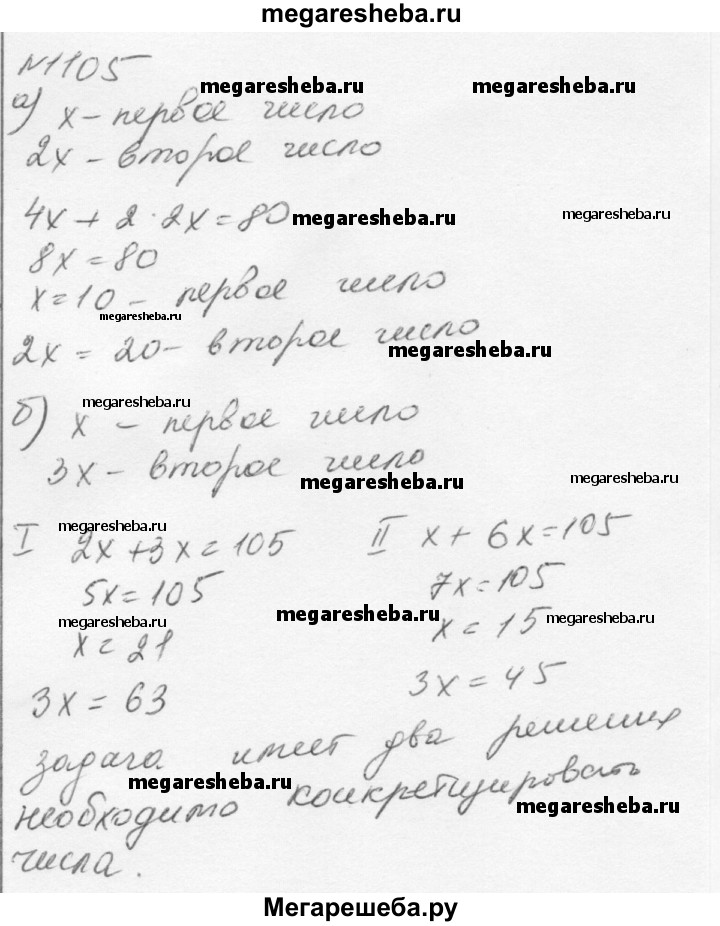 megaresheba.ru
№1105
megaresheba.ru megaresheba.ru
а) x - первое число
2x - второе число
4x + 2 · 2x = 80 megaresheba.ru megaresheba.ru
8x = 80
x = 10 - первое число
megaresheba.ru
2x = 20 - второе число
megaresheba.ru
megaresheba.ru
б) x - первое число
3x - второе число
megaresheba.ru megaresheba.ru
megaresheba.ru
I 2x + 3x = 105 II x + 6x = 105
5x = 105 7x = 105
megaresheba.ru megaresheba.ru megaresheba.ru
x = 21 x = 15
3x = 63 3x = 45
задача имеет два решения
megaresheba.ru
необходимо конкретизировать
megaresheba.ru
числа.
Мегарешеба.ру